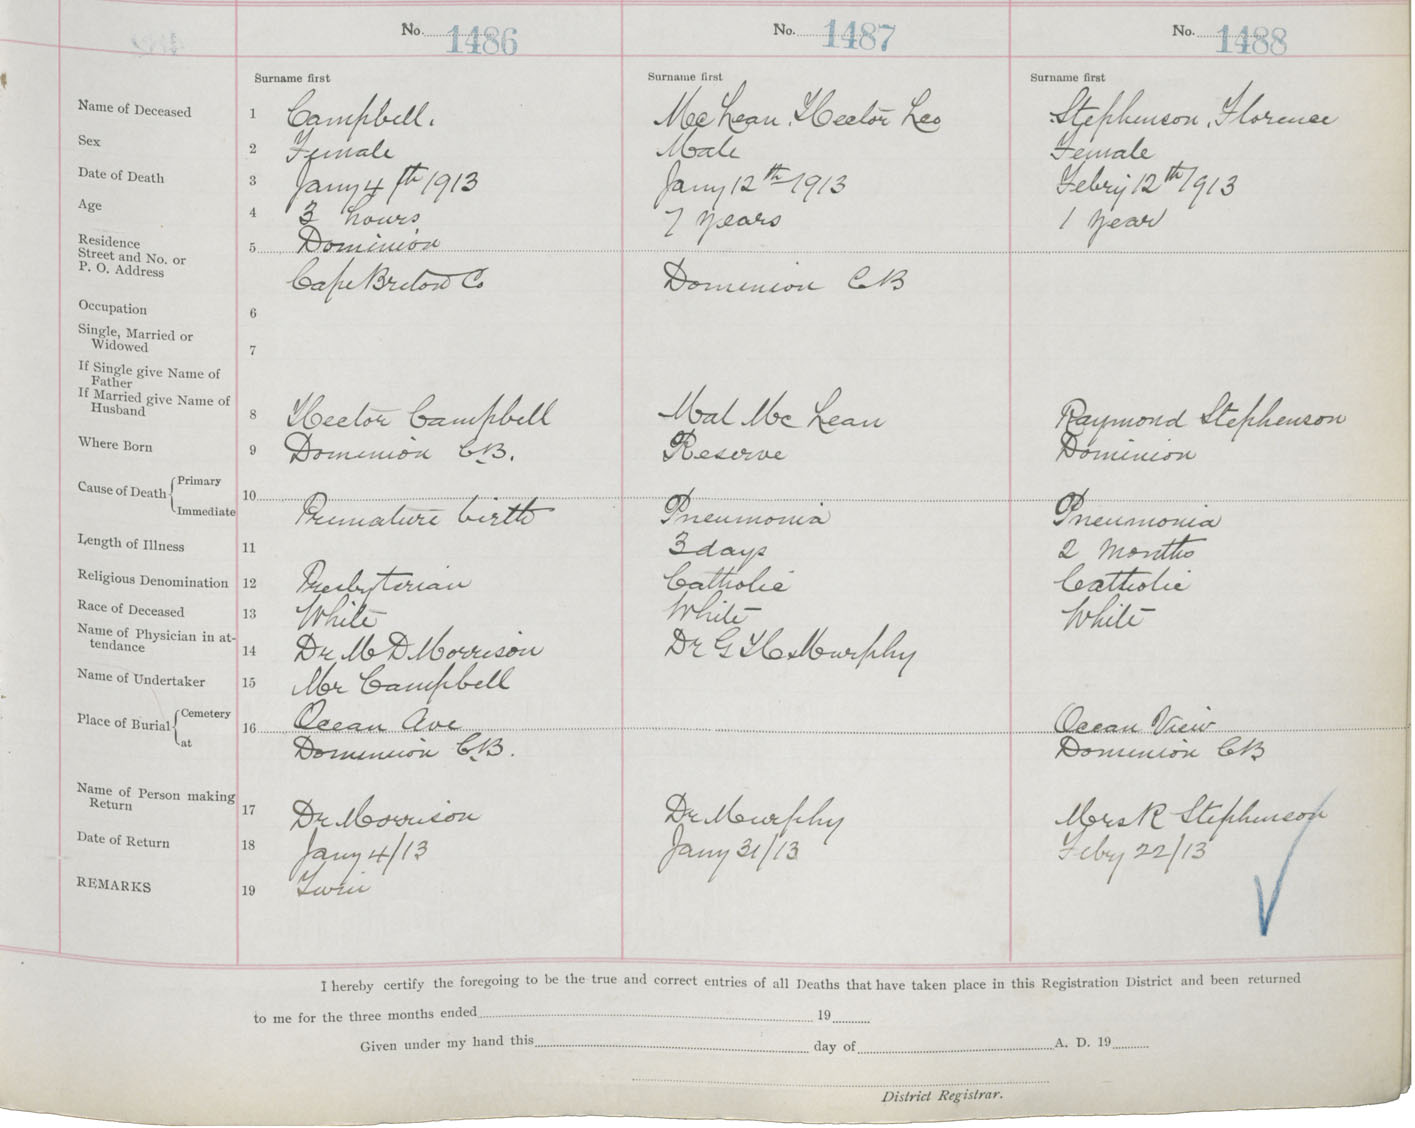 No. 1486 No. 1487 No. 1488
Surname first Surname first Surname first
Name of Deceased 1 Campbell. McLean, Hector Leo Stephenson, Florence
Sex 2 Female Male Female
Date of Death 3 Jany 4th 1913 Jany 12th 1913 Febry 12th 1913
Age 4 3 hours 7 years 1 year
Residence
Street and No. or 5 Dominion
P. O. Address Cape Breton Co Dominion CB
Occupation 6
Single, Married or
Widowed 7
If Single give Name of
Father
If Married give Name of
Husband 8 Hector Campbell Mal McLean Raymond Stephenson
Where Born 9 Dominion C.B. Reserve Dominion
Cause of Death { Primary 10
Immediate Premature birth Pneumonia Pneumonia
Length of Illness 11 3 days 2 Months
Religious Denomination 12 Presbyterian Catholic Catholic
Race of Deceased 13 White White White
Name of Physician in at-
tendance 14 Dr M D Morrison Dr G H Murphy
Name of Undertaker 15 Mr Campbell
Place of Burial { Cemetery 16 Ocean Ave Ocean View
at Dominion C.B. Dominion CB
Name of Person making
Return 17 Dr Morrison Dr Murphy Mrs R Stephenson
Date of Return 18 Jany 4/13 Jany 31/13 Feby 22/13
REMARKS 19 Twin
I hereby certify the foregoing to be the true and correct entries of all Deaths that have taken place in this Registration District and been returned
to me for the three months ended 19
Given under my hand this day of A. D. 19
District Registrar.